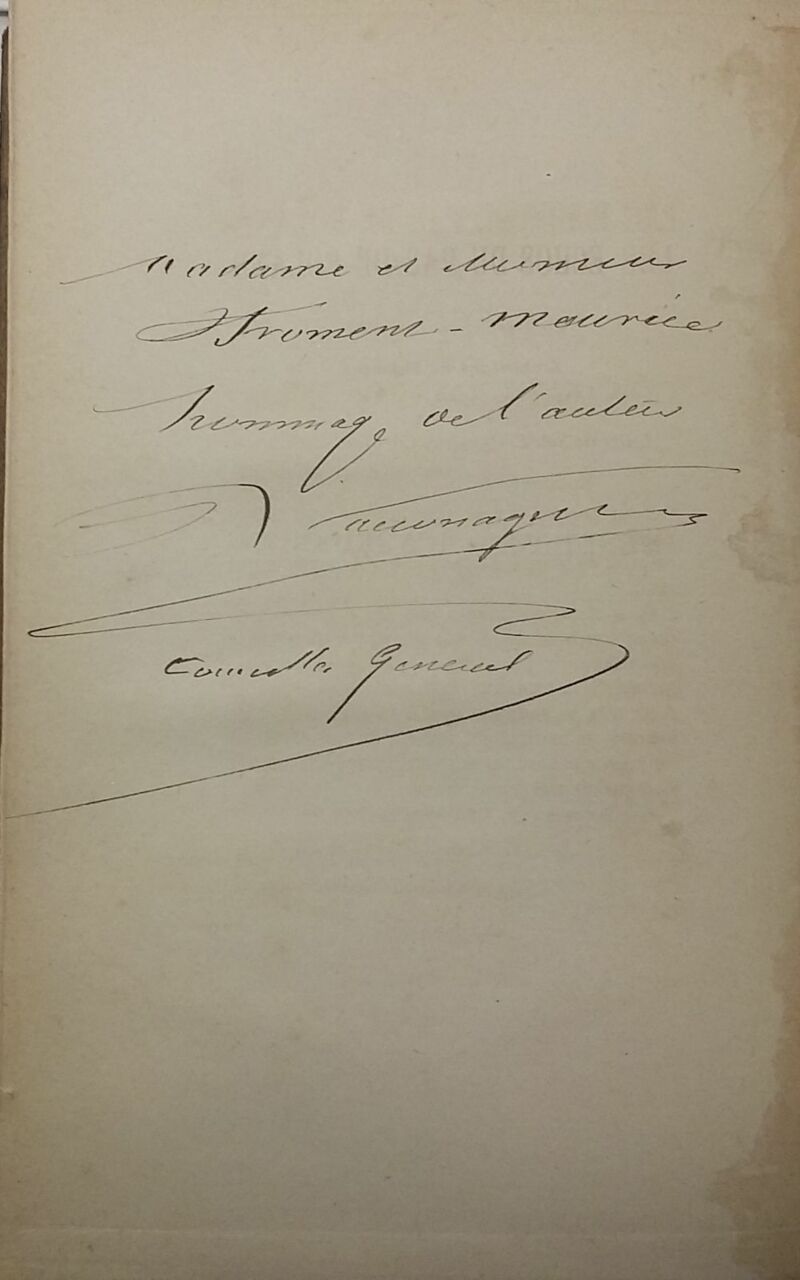 Madame et Monsieur
Froment-Meurice
hommage de l'auteur
Conseiller General